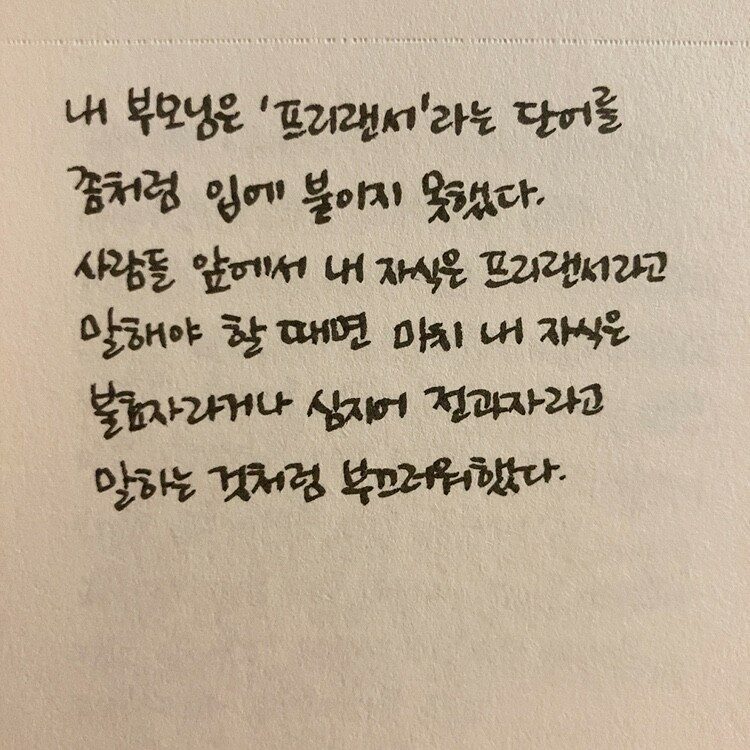 내 부모님은 '프리랜서'라는 단어를
좀처럼 입에 붙이지 못했다.
사람들 앞에서 내 자식은 프리랜서라고
말해야 할 때면 마치 내 자식은
불효자라거나 심지어 전과자라고
말하는 것처럼 부끄러워했다.